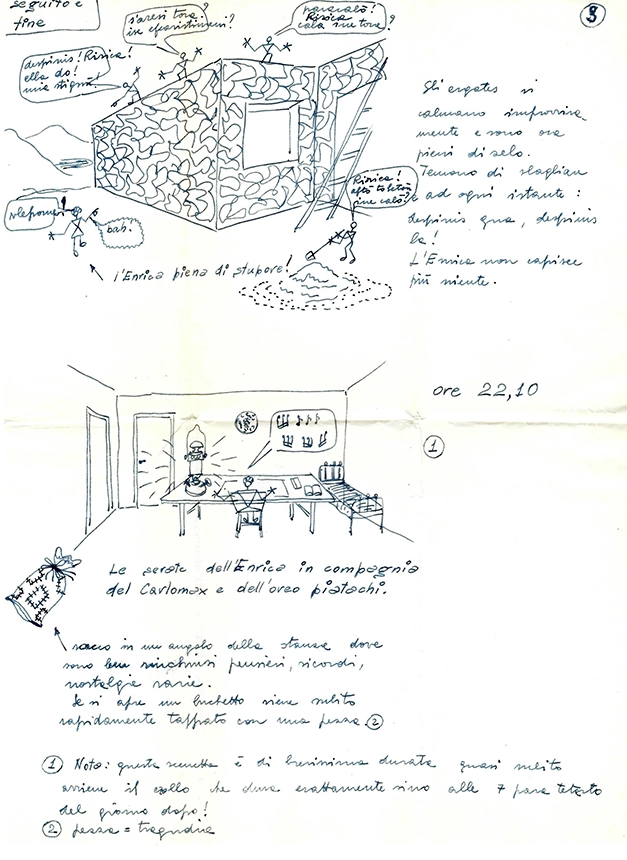 seguito e
fine
3
s'aresi tora?
ine efcaristimeni?
paracalò!
Risica
cala ine tora?
despinis! Risica!
ella do!
mia stigmì!
Risica!
afto to letoni
ine calò?
vlepome!
bah!
l'Enrica piena di stupore!
Gli ergates si
calmano improvvisa
mente e sono ora
pieni di zelo.
Temono di sbagliare
ad ogni istante:
despinis qua, despinis
là!
L'Enrica non capisce
più niente.
ore 22,10
1
Le serate dell'Enrica in compagnia
del Carlomax e dell'oreo piatachi.
sacco in un angolo della stanza dove
sono ben rinchiusi pensieri, ricordi,
nostalgie varie.
Se si apre un buchetto viene subito
rapidamente tappato con una pezza. 2
1 Nota: questa scenetta è di brevissima durata quasi subito
arriva il crollo che dura esattamente sino alle 7 para tetarto
del giorno dopo!
2 pezza = tragudia